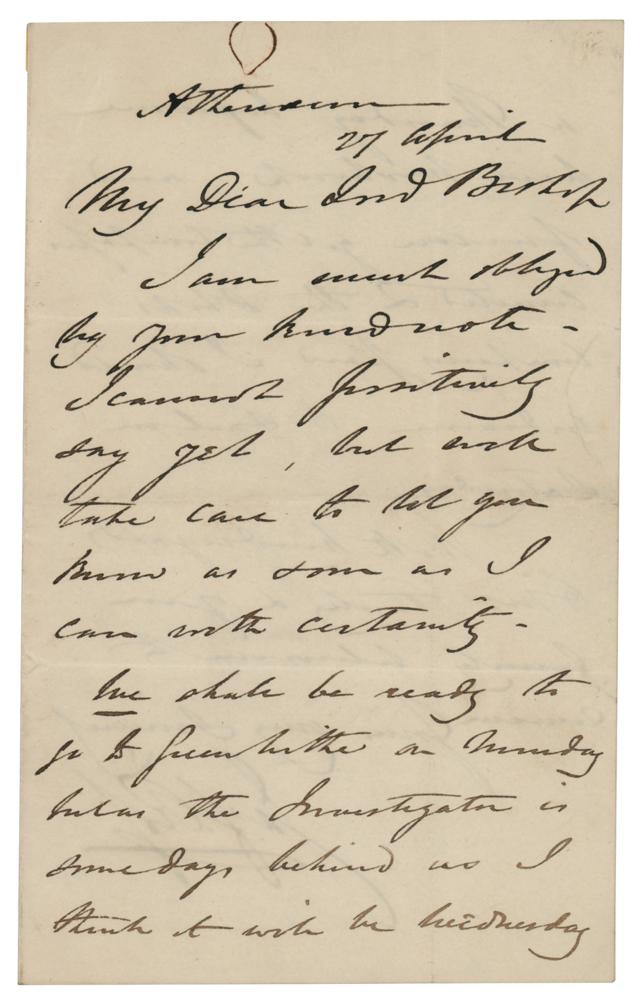 Athenæum
27 April
My Dear Lord Bishop
I am much obliged
by your kind note -
I cannot positively
say yet, but will
take care to let you
know as soon as I
can with certainty -
We shall be ready to
go to Greenhithe on Monday
but as the Investigator is
some days behind us I
think it will be Wednesday